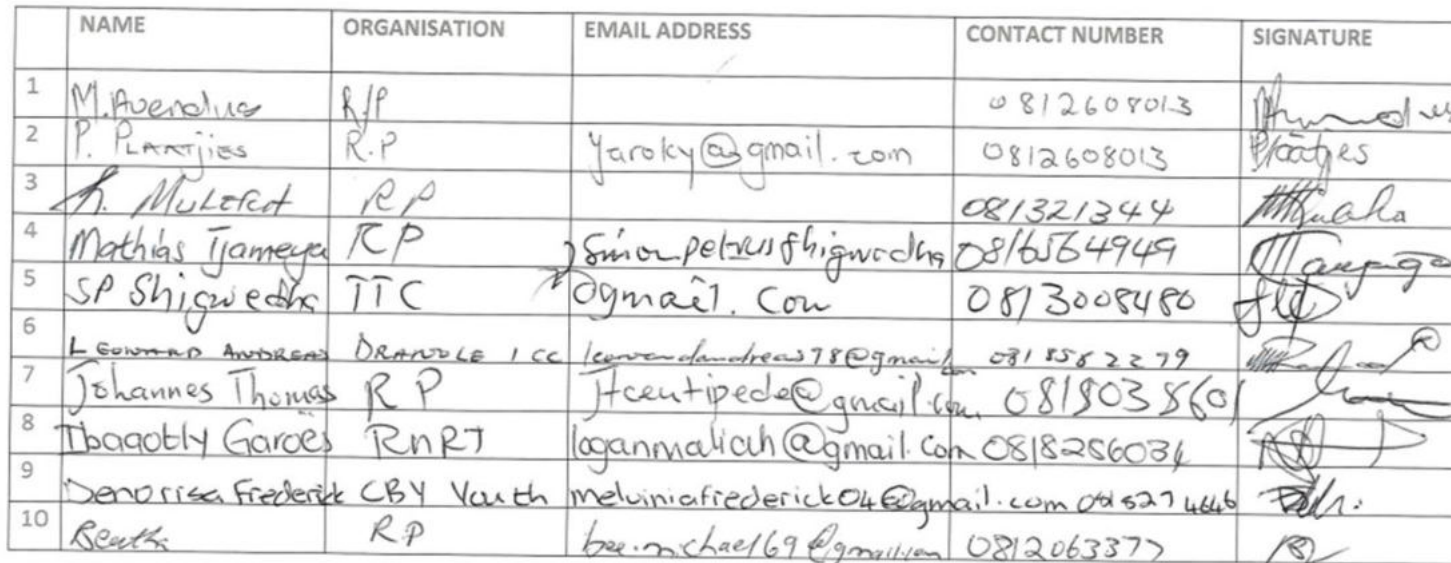 NAME ORGANISATION EMAIL ADDRESS CONTACT NUMBER SIGNATURE
1 M. Avendus R/P 0812608013
2 P. PLAATJIES R.P yaroky@gmail.com 0812608013 Plaatjes
3 RP 081321344
4 Mathias Tjameya RP Simonpetrusshigwedha 0816564949
5 SP Shigwedha TTC @gmail.com 0813008480
6 LEONARD ANDREAS ORANDLE 1 CC leonardandreas78@gmail.com 0818562279
7 Johannes Thomas RP Jtcentipede@gmail.com
8 Garoes RnRJ loganmaliah@gmail.com 0818286034
9 Denorisa Frederick CBY Youth melviniafrederick04@gmail.com 0815274646
10 R.P bee.michael69@gmail.com 0812063377